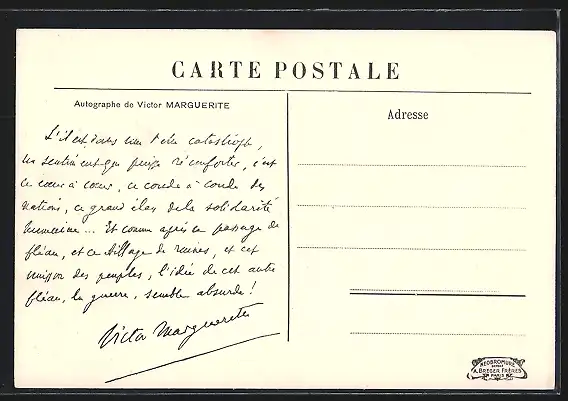 CARTE POSTALE
Autographe de Victor MARGUERITE
Adresse
S'il est dans une telle catastrophe,
un sentiment qui puisse réconforter, c'est
ce cœur à cœur, ce coude à coude des
nations, ce grand élan de la solidarité
humaine... Et comme après ce passage du
fléau, et ce village de ruines, et cet
unisson des peuples, l'idée de cet autre
fléau, la guerre, semble absurde !
Victor Marguerite
NEOBROMURE
A. BREGER FRÈRES
PARIS